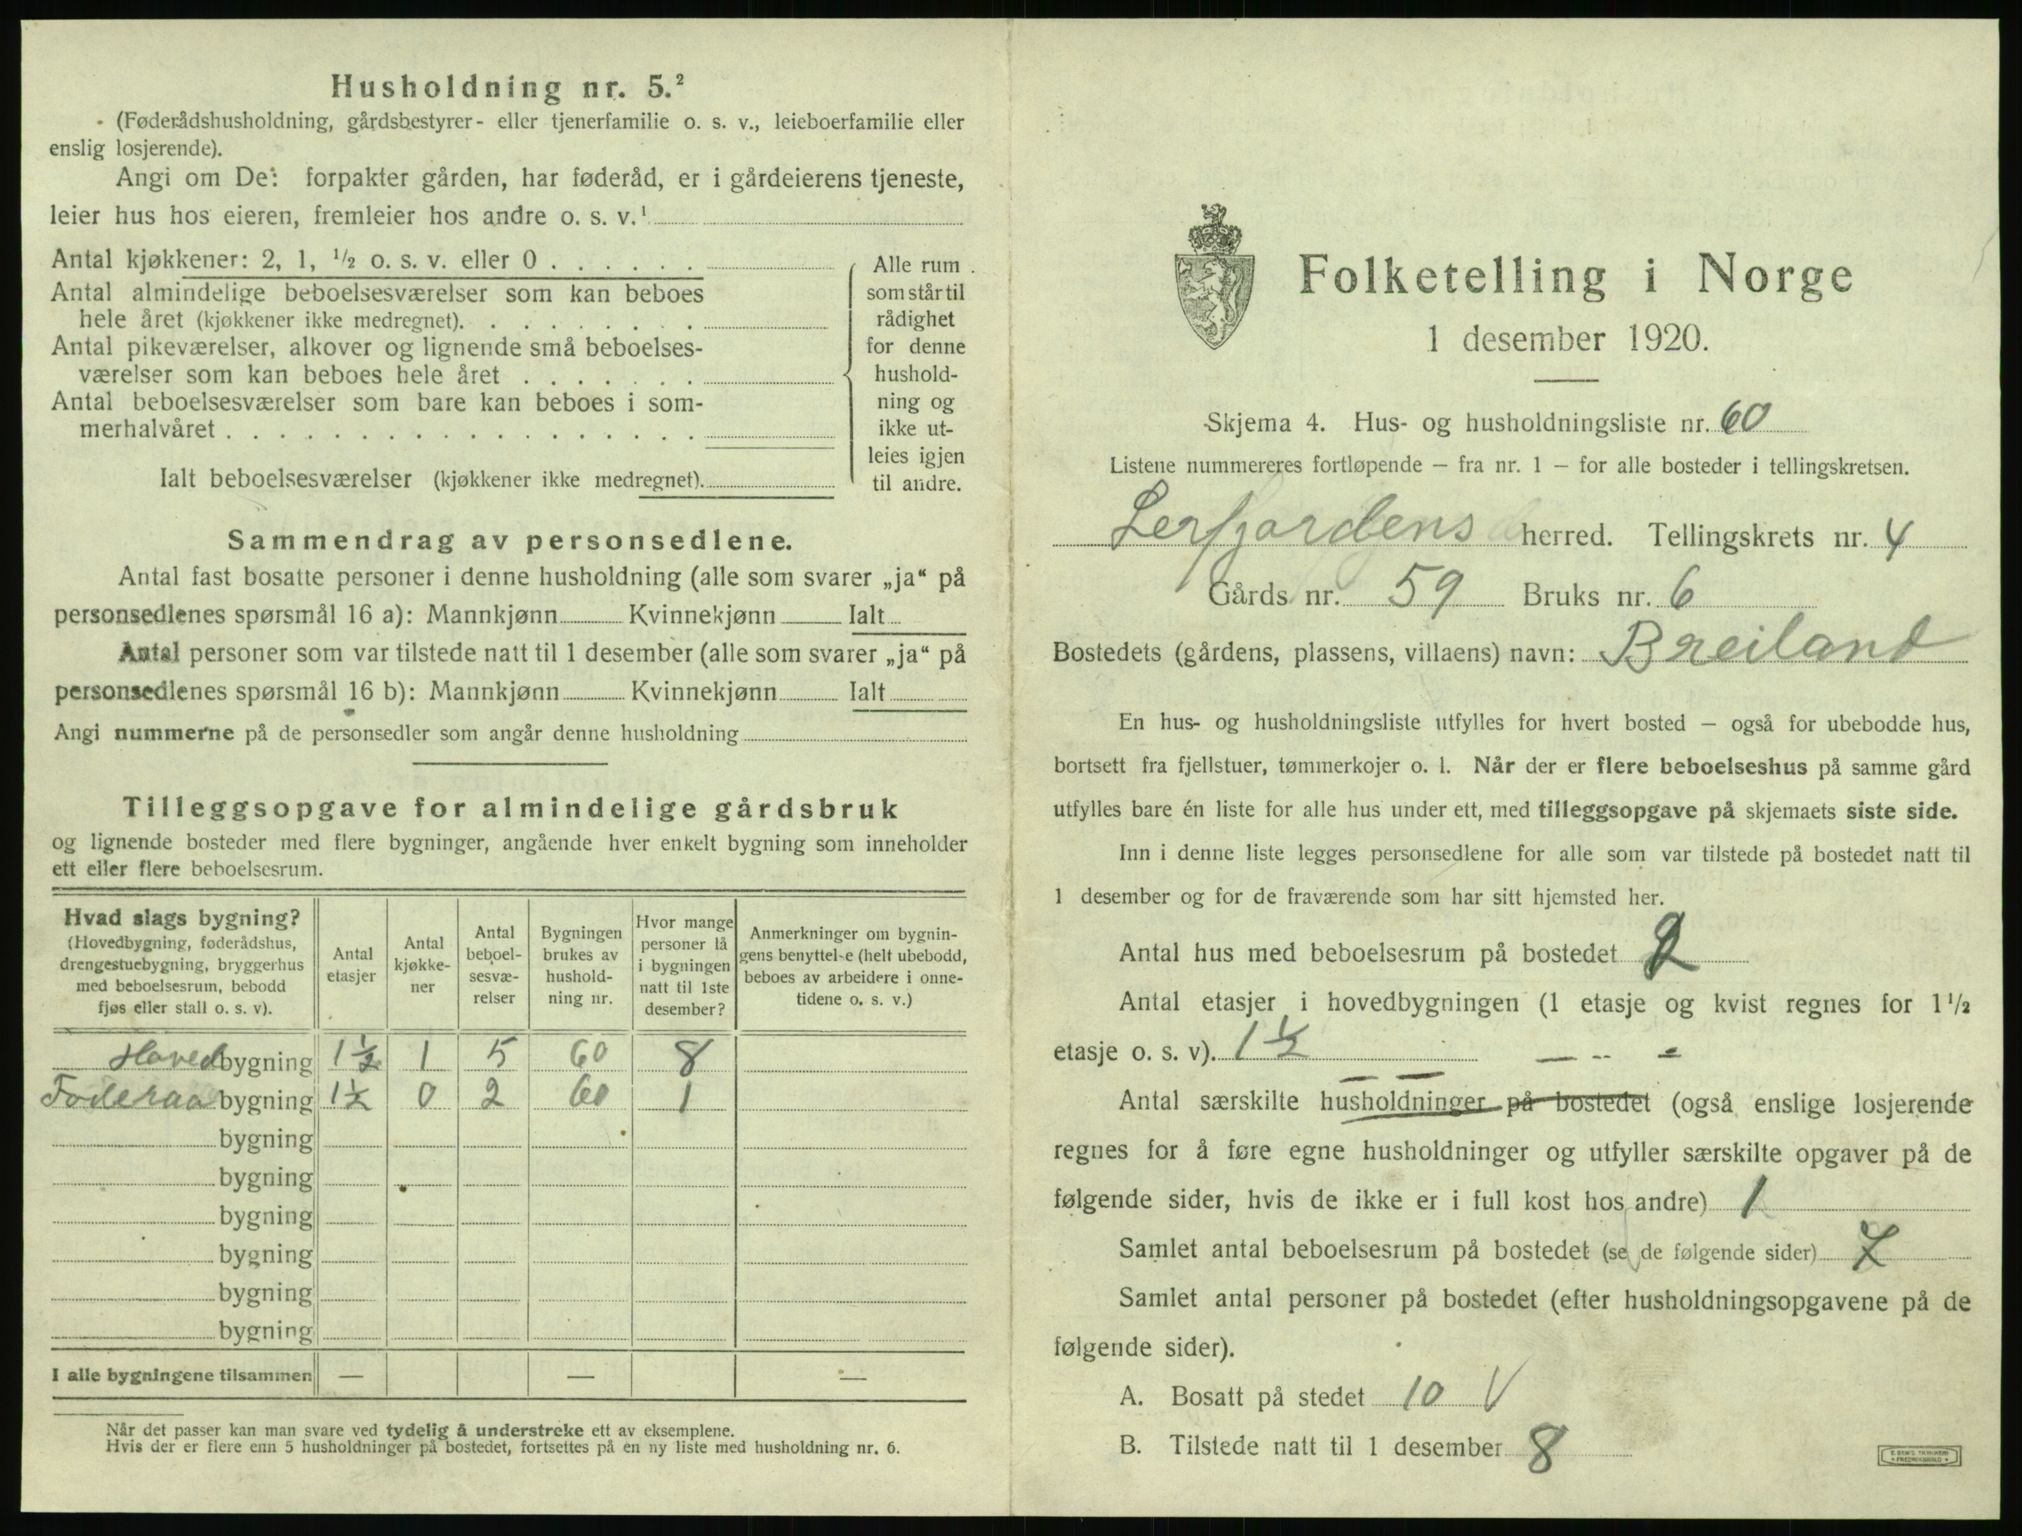 Husholdning nr. 5.²
(Føderådshusholdning, gårdsbestyrer- eller tjenerfamilie o. s. v., leieboerfamilie eller
enslig losjerende).
Angi om De: forpakter gården, har føderåd, er i gårdeierens tjeneste,
leier hus hos eieren, fremleier hos andre o. s. v.¹
Antal kjøkkener: 2, 1, ½ o. s. v. eller 0 . . . . . .
Antal almindelige beboelsesværelser som kan beboes
hele året (kjøkkener ikke medregnet). . . . . . . . .
Antal pikeværelser, alkover og lignende små beboelses-
værelser som kan beboes hele året . . . . . . .
Antal beboelsesværelser som bare kan beboes i som-
merhalvåret . . . . . . . . . . . . . . . . . .
Ialt beboelsesværelser (kjøkkener ikke medregnet).
Alle rum
som står til
rådighet
for denne
hushold-
ning og
ikke ut-
leies igjen
til andre.
Sammendrag av personsedlene.
Antal fast bosatte personer i denne husholdning (alle som svarer „ja“ på
personsedlenes spørsmål 16 a): Mannkjønn Kvinnekjønn Ialt
Antal personer som var tilstede natt til 1 desember (alle som svarer „ja“ på
personsedlenes spørsmål 16 b): Mannkjønn Kvinnekjønn Ialt
Angi nummerne på de personsedler som angår denne husholdning
Tilleggsopgave for almindelige gårdsbruk
og lignende bosteder med flere bygninger, angående hver enkelt bygning som inneholder
ett eller flere beboelsesrum.
Hvad slags bygning?
(Hovedbygning, føderådshus,
drengestuebygning, bryggerhus
med beboelsesrum, bebodd
fjøs eller stall o. s. v).
Antal
etasjer
Antal
kjøkke-
ner
Antal
beboel-
sesvæ-
relser
Bygningen
brukes av
hushold-
ning nr.
Hvor mange
personer lå
i bygningen
natt til 1ste
desember?
Anmerkninger om bygnin-
gens benyttelse (helt ubebodd,
beboes av arbeidere i onne-
tidene o. s. v.)
Hovedbygning 1½ 1 5 60 8
Føderaabygning 1½ 0 2 60 1
bygning
bygning
bygning
bygning
bygning
bygning
I alle bygningene tilsammen — — —
Når det passer kan man svare ved tydelig å understreke ett av eksemplene.
Hvis der er flere enn 5 husholdninger på bostedet, fortsettes på en ny liste med husholdning nr. 6.
Folketelling i Norge
1 desember 1920.
Skjema 4. Hus- og husholdningsliste nr. 60
Listene nummereres fortløpende — fra nr. 1 — for alle bosteder i tellingskretsen.
Lerfjordens herred. Tellingskrets nr. 4
Gårds nr. 59 Bruks nr. 6
Bostedets (gårdens, plassens, villaens) navn: Breiland
En hus- og husholdningsliste utfylles for hvert bosted — også for ubebodde hus,
bortsett fra fjellstuer, tømmerkojer o. l. Når der er flere beboelseshus på samme gård
utfylles bare én liste for alle hus under ett, med tilleggsopgave på skjemaets siste side.
Inn i denne liste legges personsedlene for alle som var tilstede på bostedet natt til
1 desember og for de fraværende som har sitt hjemsted her.
Antal hus med beboelsesrum på bostedet 2
Antal etasjer i hovedbygningen (1 etasje og kvist regnes for 1½
etasje o. s. v). 1½
Antal særskilte husholdninger på bostedet (også enslige losjerende
regnes for å føre egne husholdninger og utfyller særskilte opgaver på de
følgende sider, hvis de ikke er i full kost hos andre) 1
Samlet antal beboelsesrum på bostedet (se de følgende sider) 7
Samlet antal personer på bostedet (efter husholdningsopgavene på de
følgende sider).
A. Bosatt på stedet 10 V
B. Tilstede natt til 1 desember 8